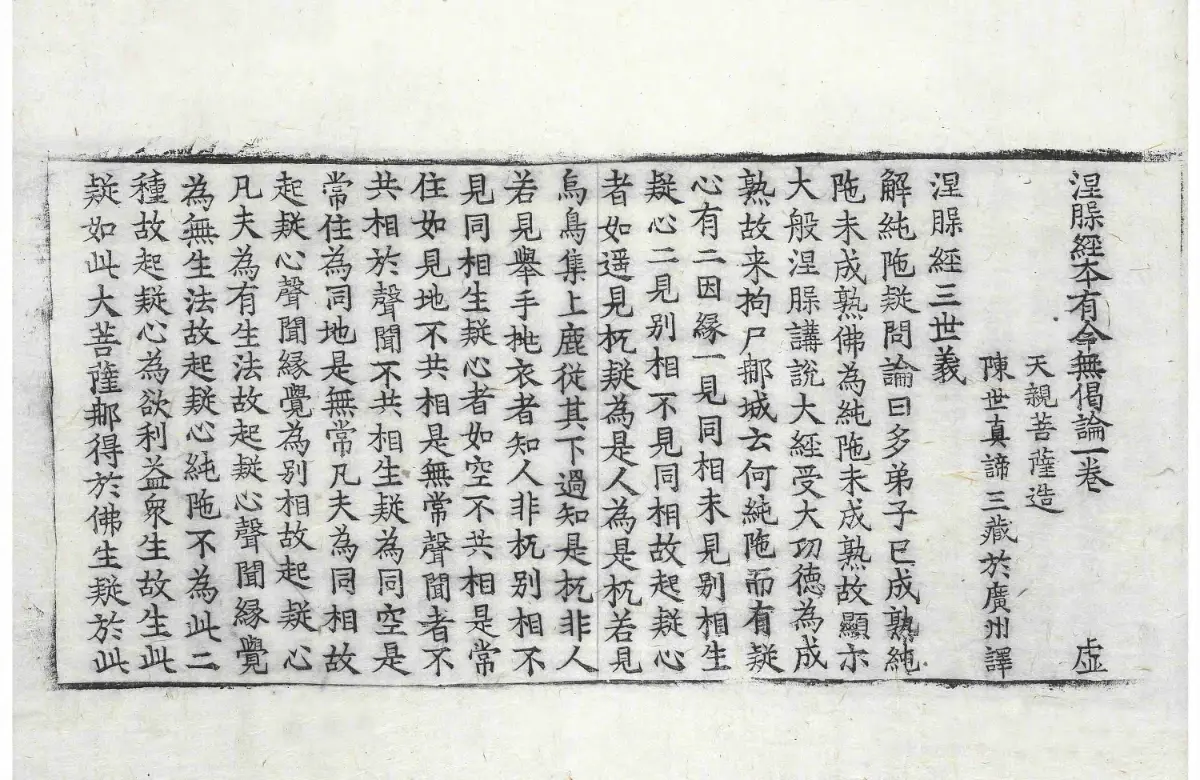 涅脲經本有今無偈論一卷 虛
天親菩薩造
陳世真諦三藏於廣州譯
涅脲經三世義
解純陁疑問論曰多弟子已成熟純
陁未成熟佛為純陁未成熟故顯示
大般涅脲講說大經受大功德為成
熟故来拘尸那城云何純陁而有疑
心有二因緣一見同相未見别相生
疑心二見别相不見同相故起疑心
者如遥見杌疑為是人為是杌若見
烏鳥集上鹿從其下過知是杌非人
若見舉手抴衣者知人非杌别相不
見同相生疑心者如空不共相是常
住如見地不共相是無常聲聞者不
共相於聲聞不共相生疑為同空是
常住為同地是無常凡夫為同相故
起疑心聲聞緣覺為别相故起疑心
凡夫為有生法故起疑心聲聞緣覺
為無生法故起疑心純陁不為此二
種故起疑心為欲利益衆生故生此
疑如此大菩薩那得於佛生疑於此